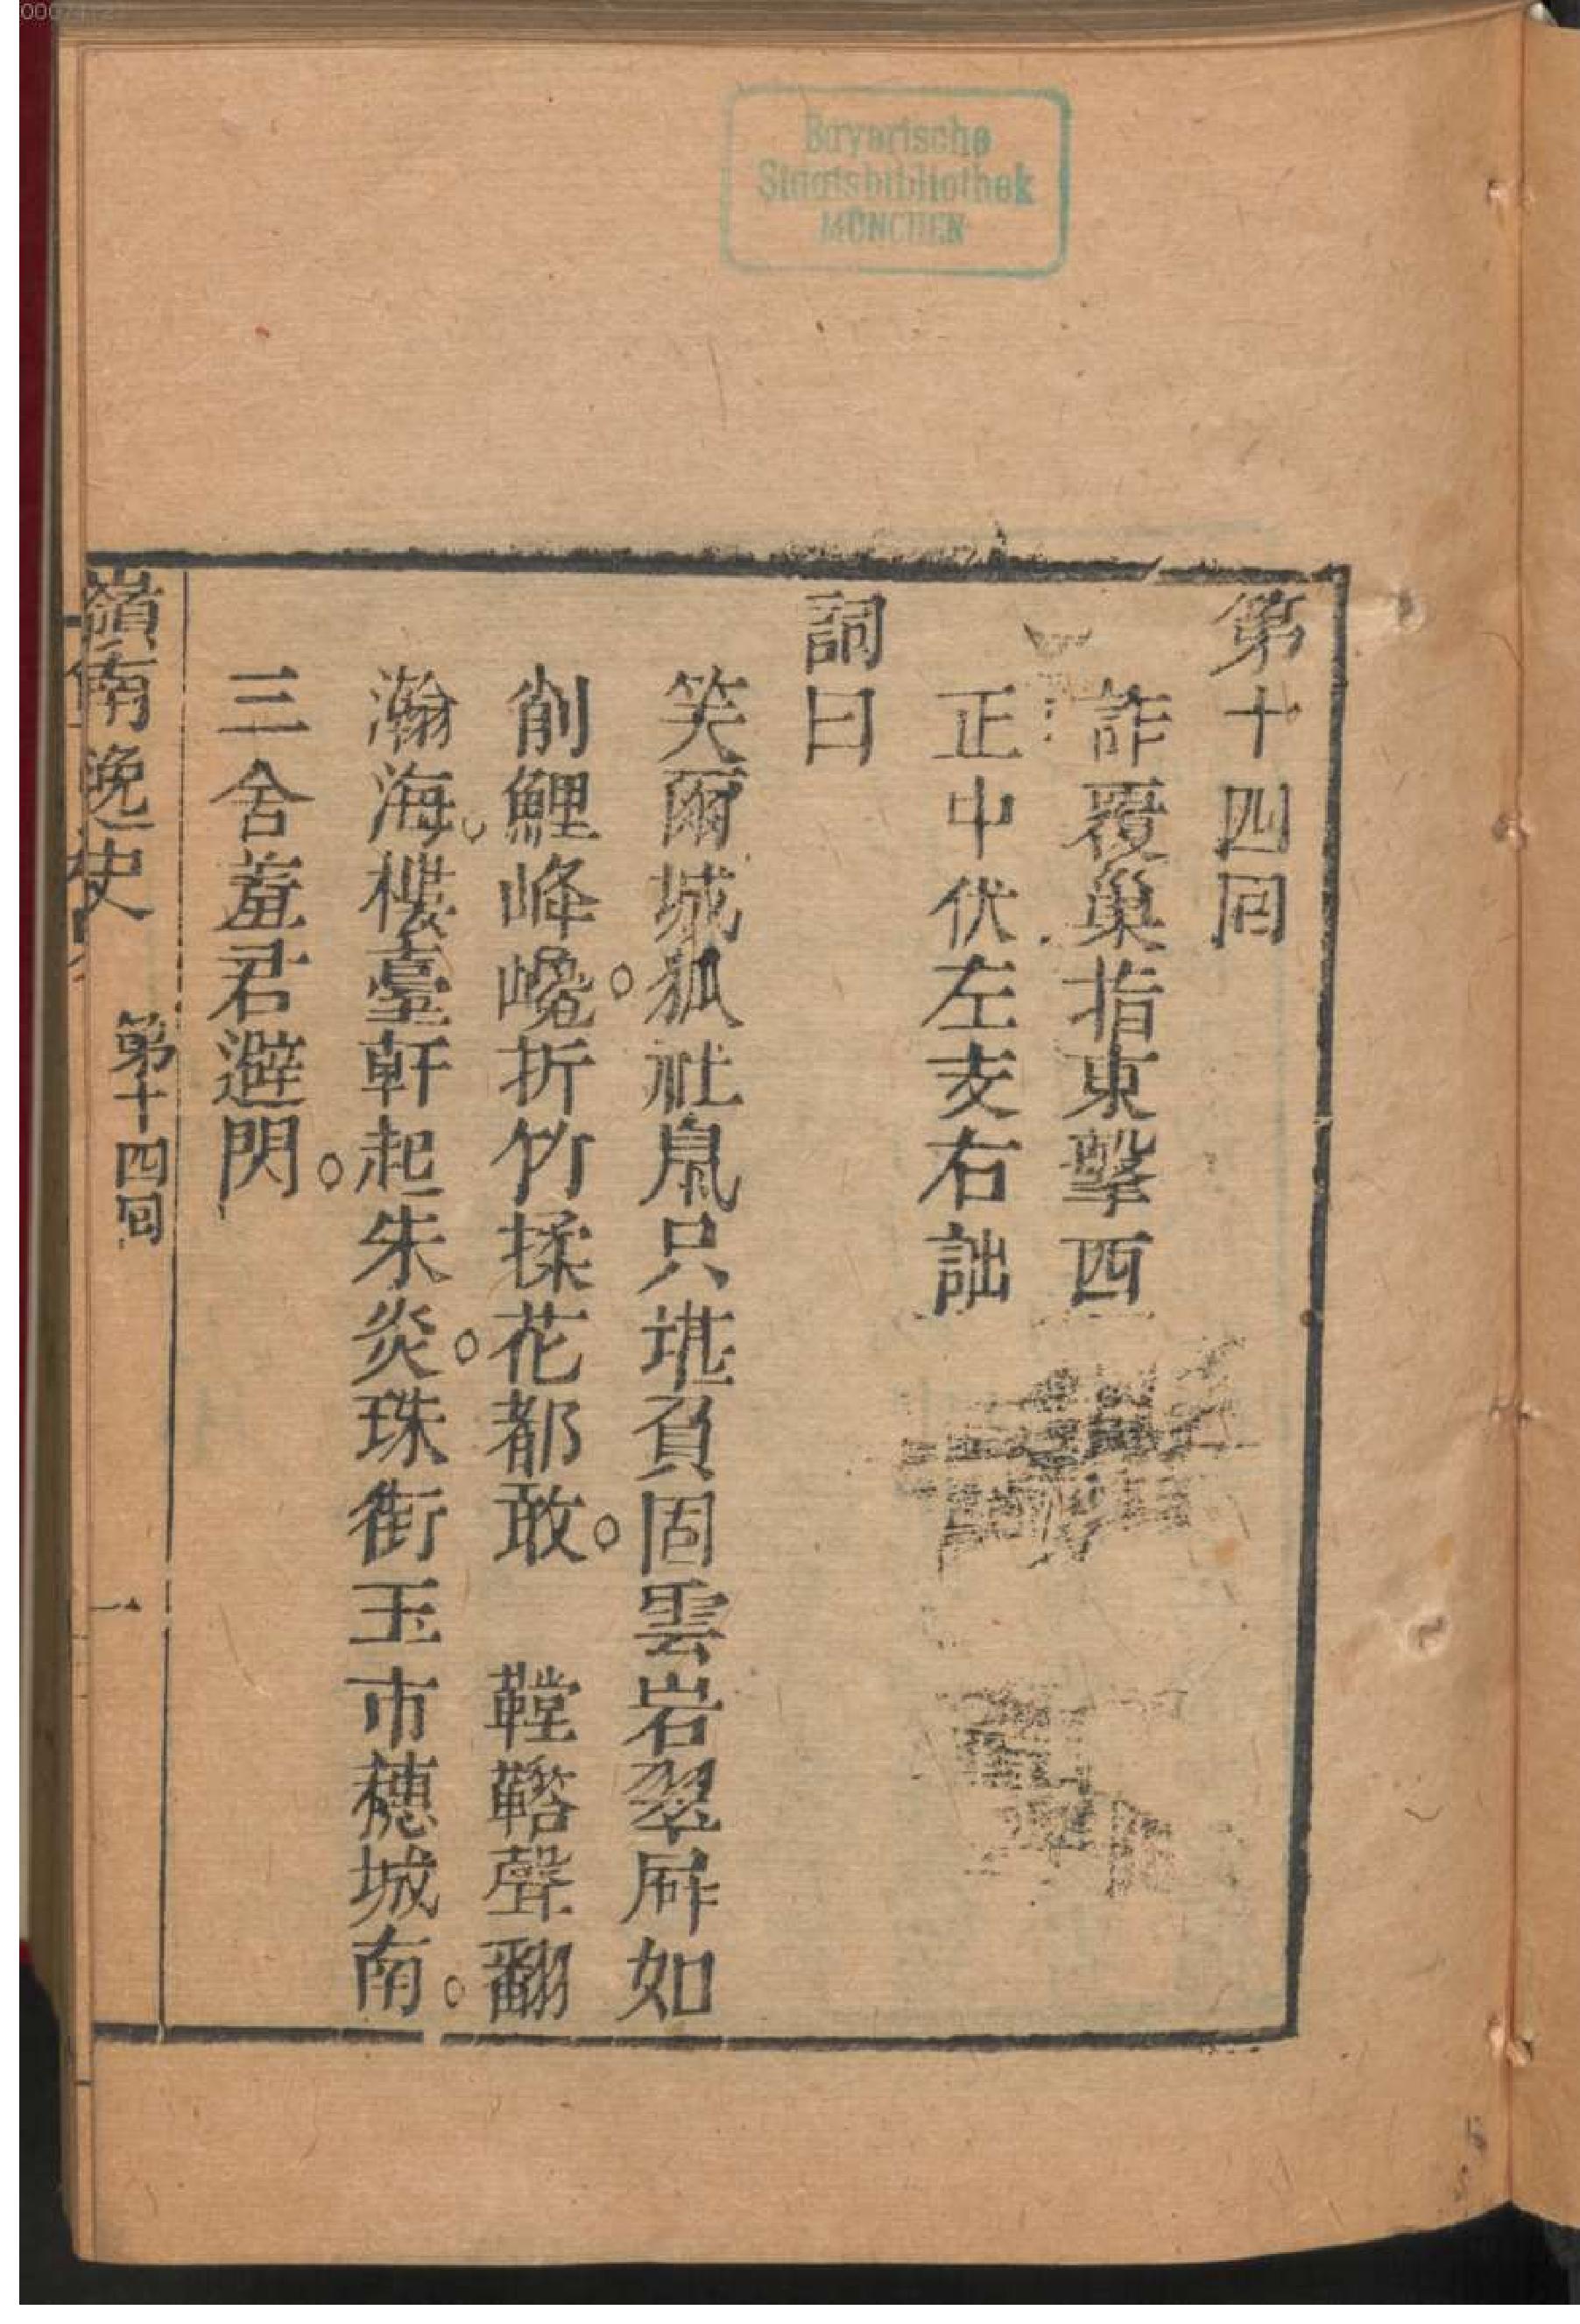 Bayerische
Staatsbibliothek
MÜNCHEN
第十四囘
詐覆巢指東擊西
正中伏左支右詘
詞曰
笑爾城狐社鼠只堪負固雲岩翠屏如
削鯉峰巉。折竹揉花都敢。 鞺鞳聲翻
瀚海。樓臺軒起朱炎。珠街玉市穗城南。
三舍羞君避閃。
嶺南晚史
第十四回
一